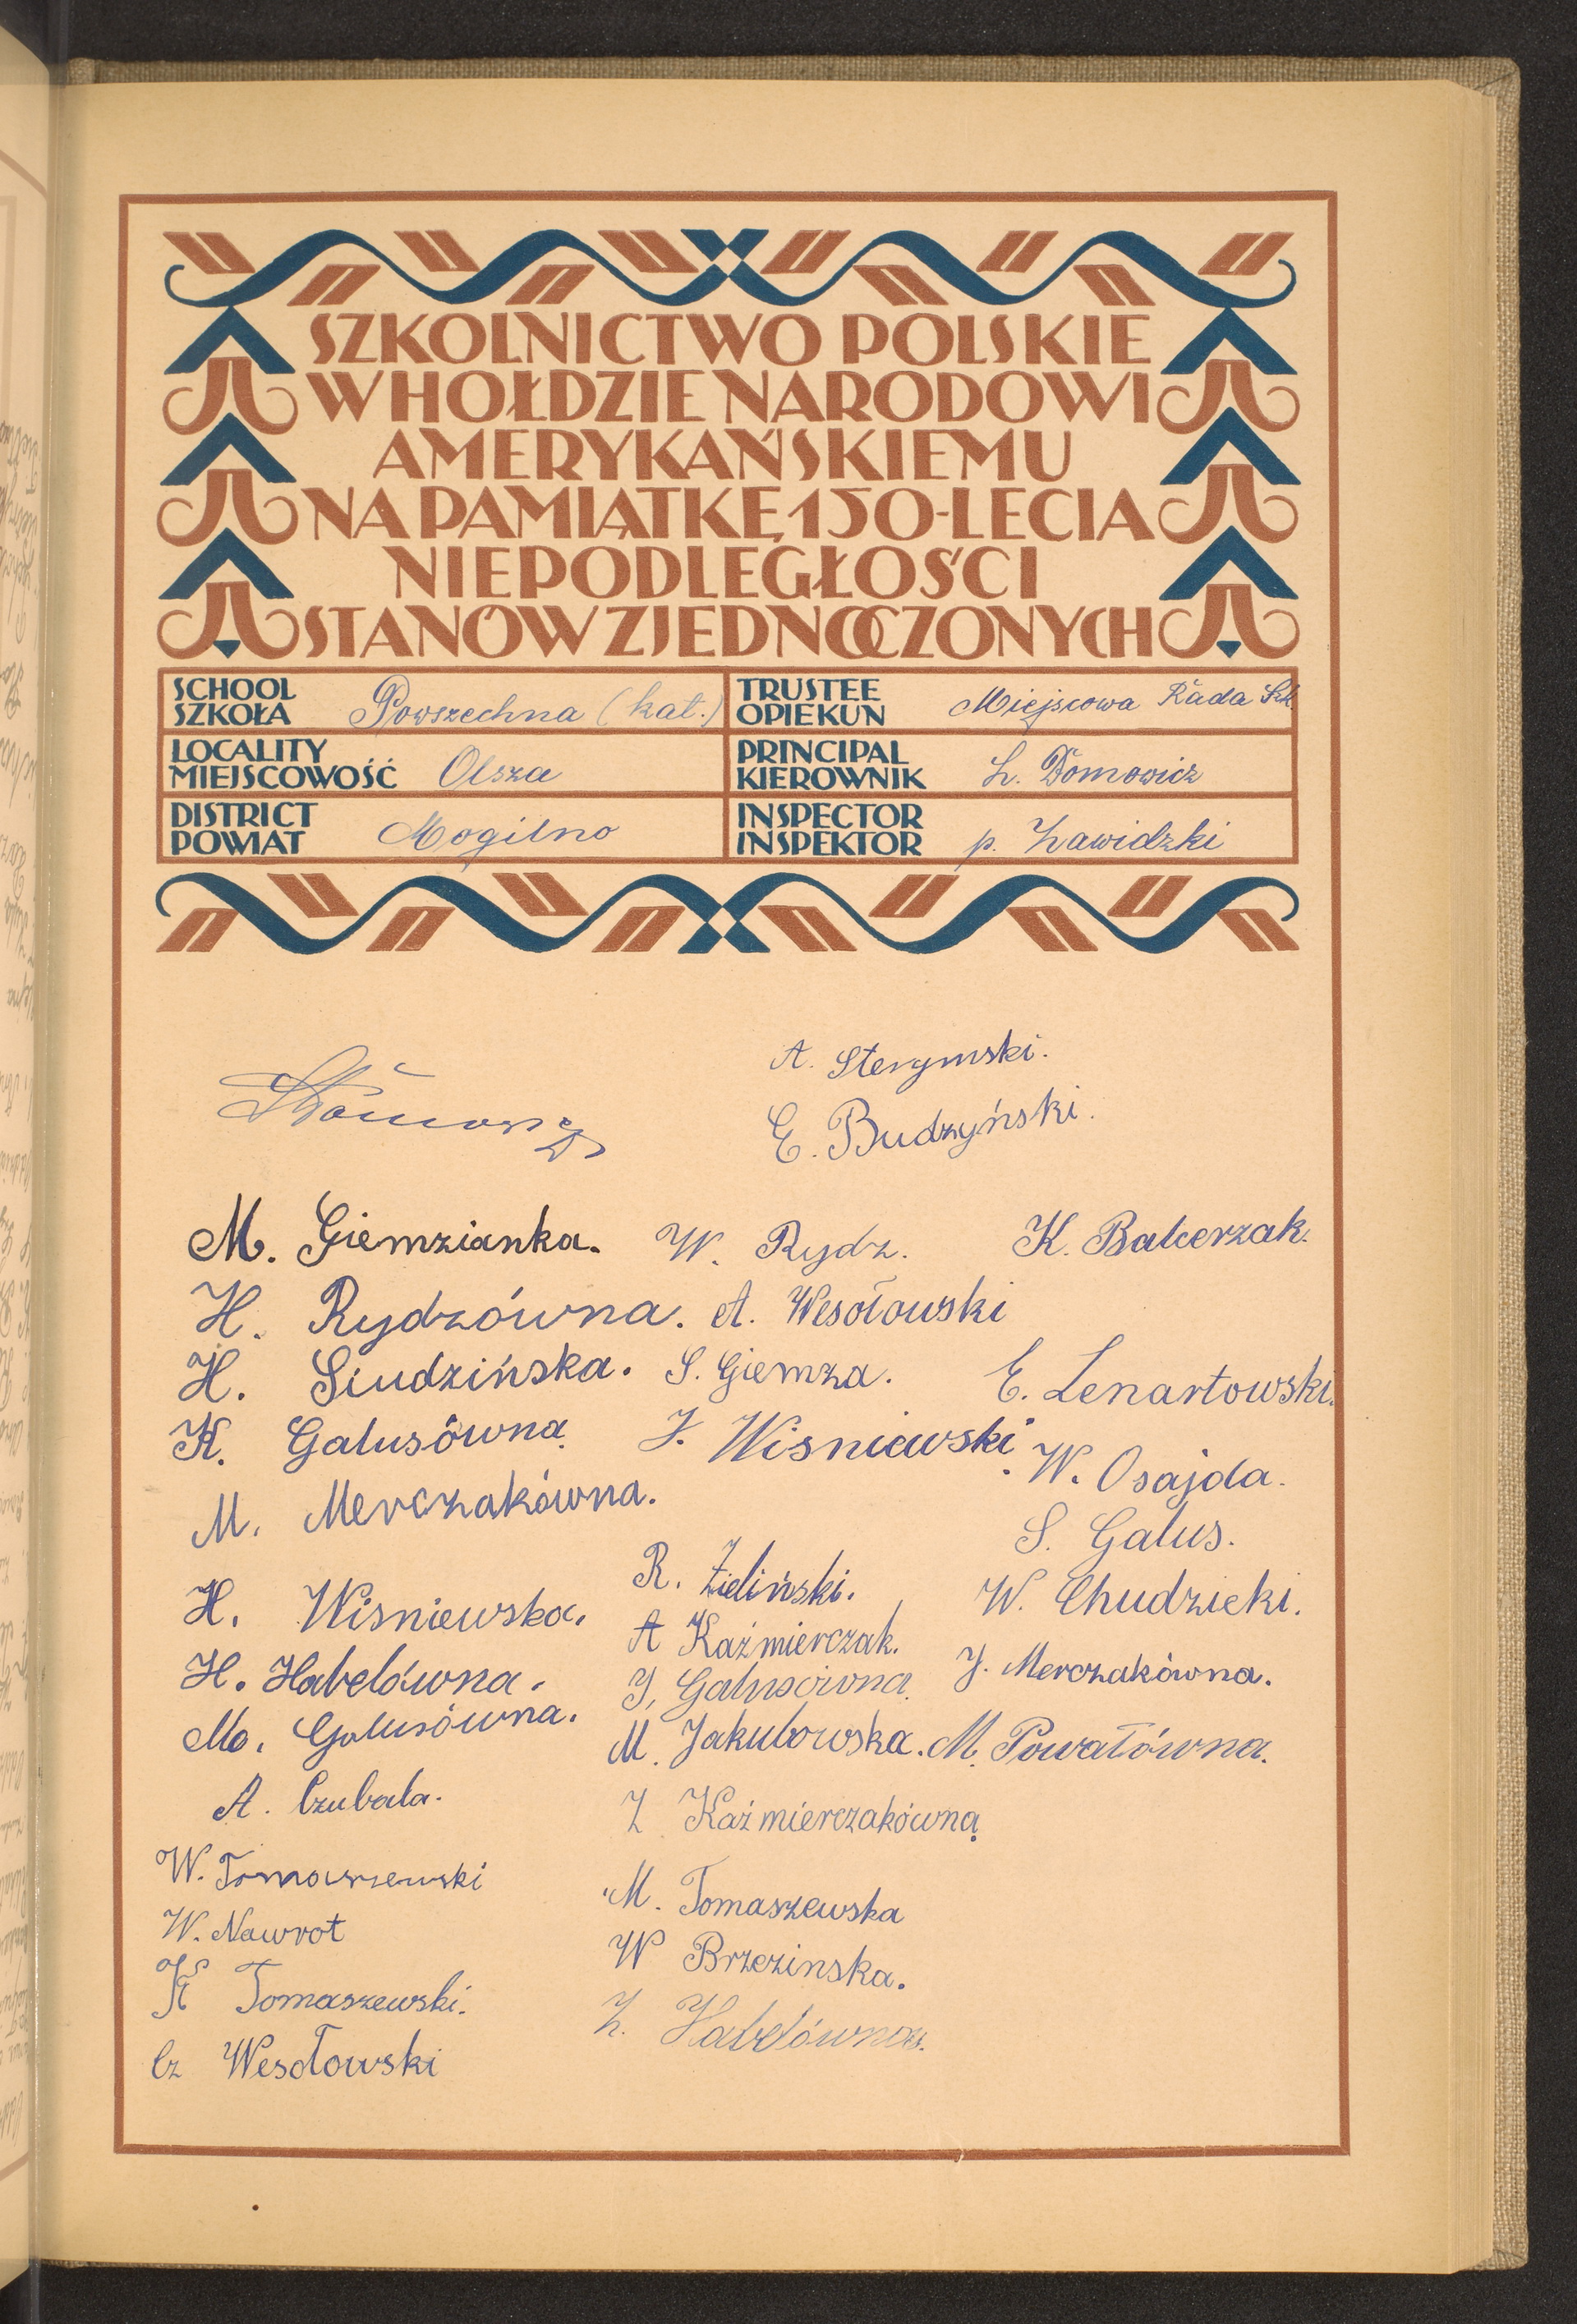 SZKOLNICTWO POLSKIE
W HOŁDZIE NARODOWI
AMERYKAŃSKIEMU
NA PAMIĄTKĘ 150-LECIA
NIEPODLEGŁOŚCI
STANÓW ZJEDNOCZONYCH
SCHOOL
SZKOŁA
Powszechna (kat.)
TRUSTEE
OPIEKUN
Miejscowa Rada Szk.
LOCALITY
MIEJSCOWOŚĆ
Olsza
PRINCIPAL
KIEROWNIK
L. Domowicz
DISTRICT
POWIAT
Mogilno
INSPECTOR
INSPEKTOR
p. Zawidzki
A. Sterymski.
E. Budzyński.
M. Giemzianka.
W. Rydz.
K. Balcerzak.
H. Rydzówna.
A. Wesołowski
H. Siudzińska.
S. Giemza.
E. Lenartowski.
K. Galusówna.
J. Wisniewski.
W. Osajda.
M. Merczakówna.
S. Galus.
R. Zieliński.
W. Chudzicki.
H. Wisniewska.
A Kaźmierczak.
H. Habelówna.
J. Galusówna.
J. Merczakówna.
M. Galusówna.
M. Jakubowska.
M. Powałówna.
A. Czubala.
Z Kaźmierczakówna
W. Tomaszewski
M. Tomaszewska
W. Nawrot
W Brzezinska.
K Tomaszewski.
Z. Habelówna.
Cz Wesołowski